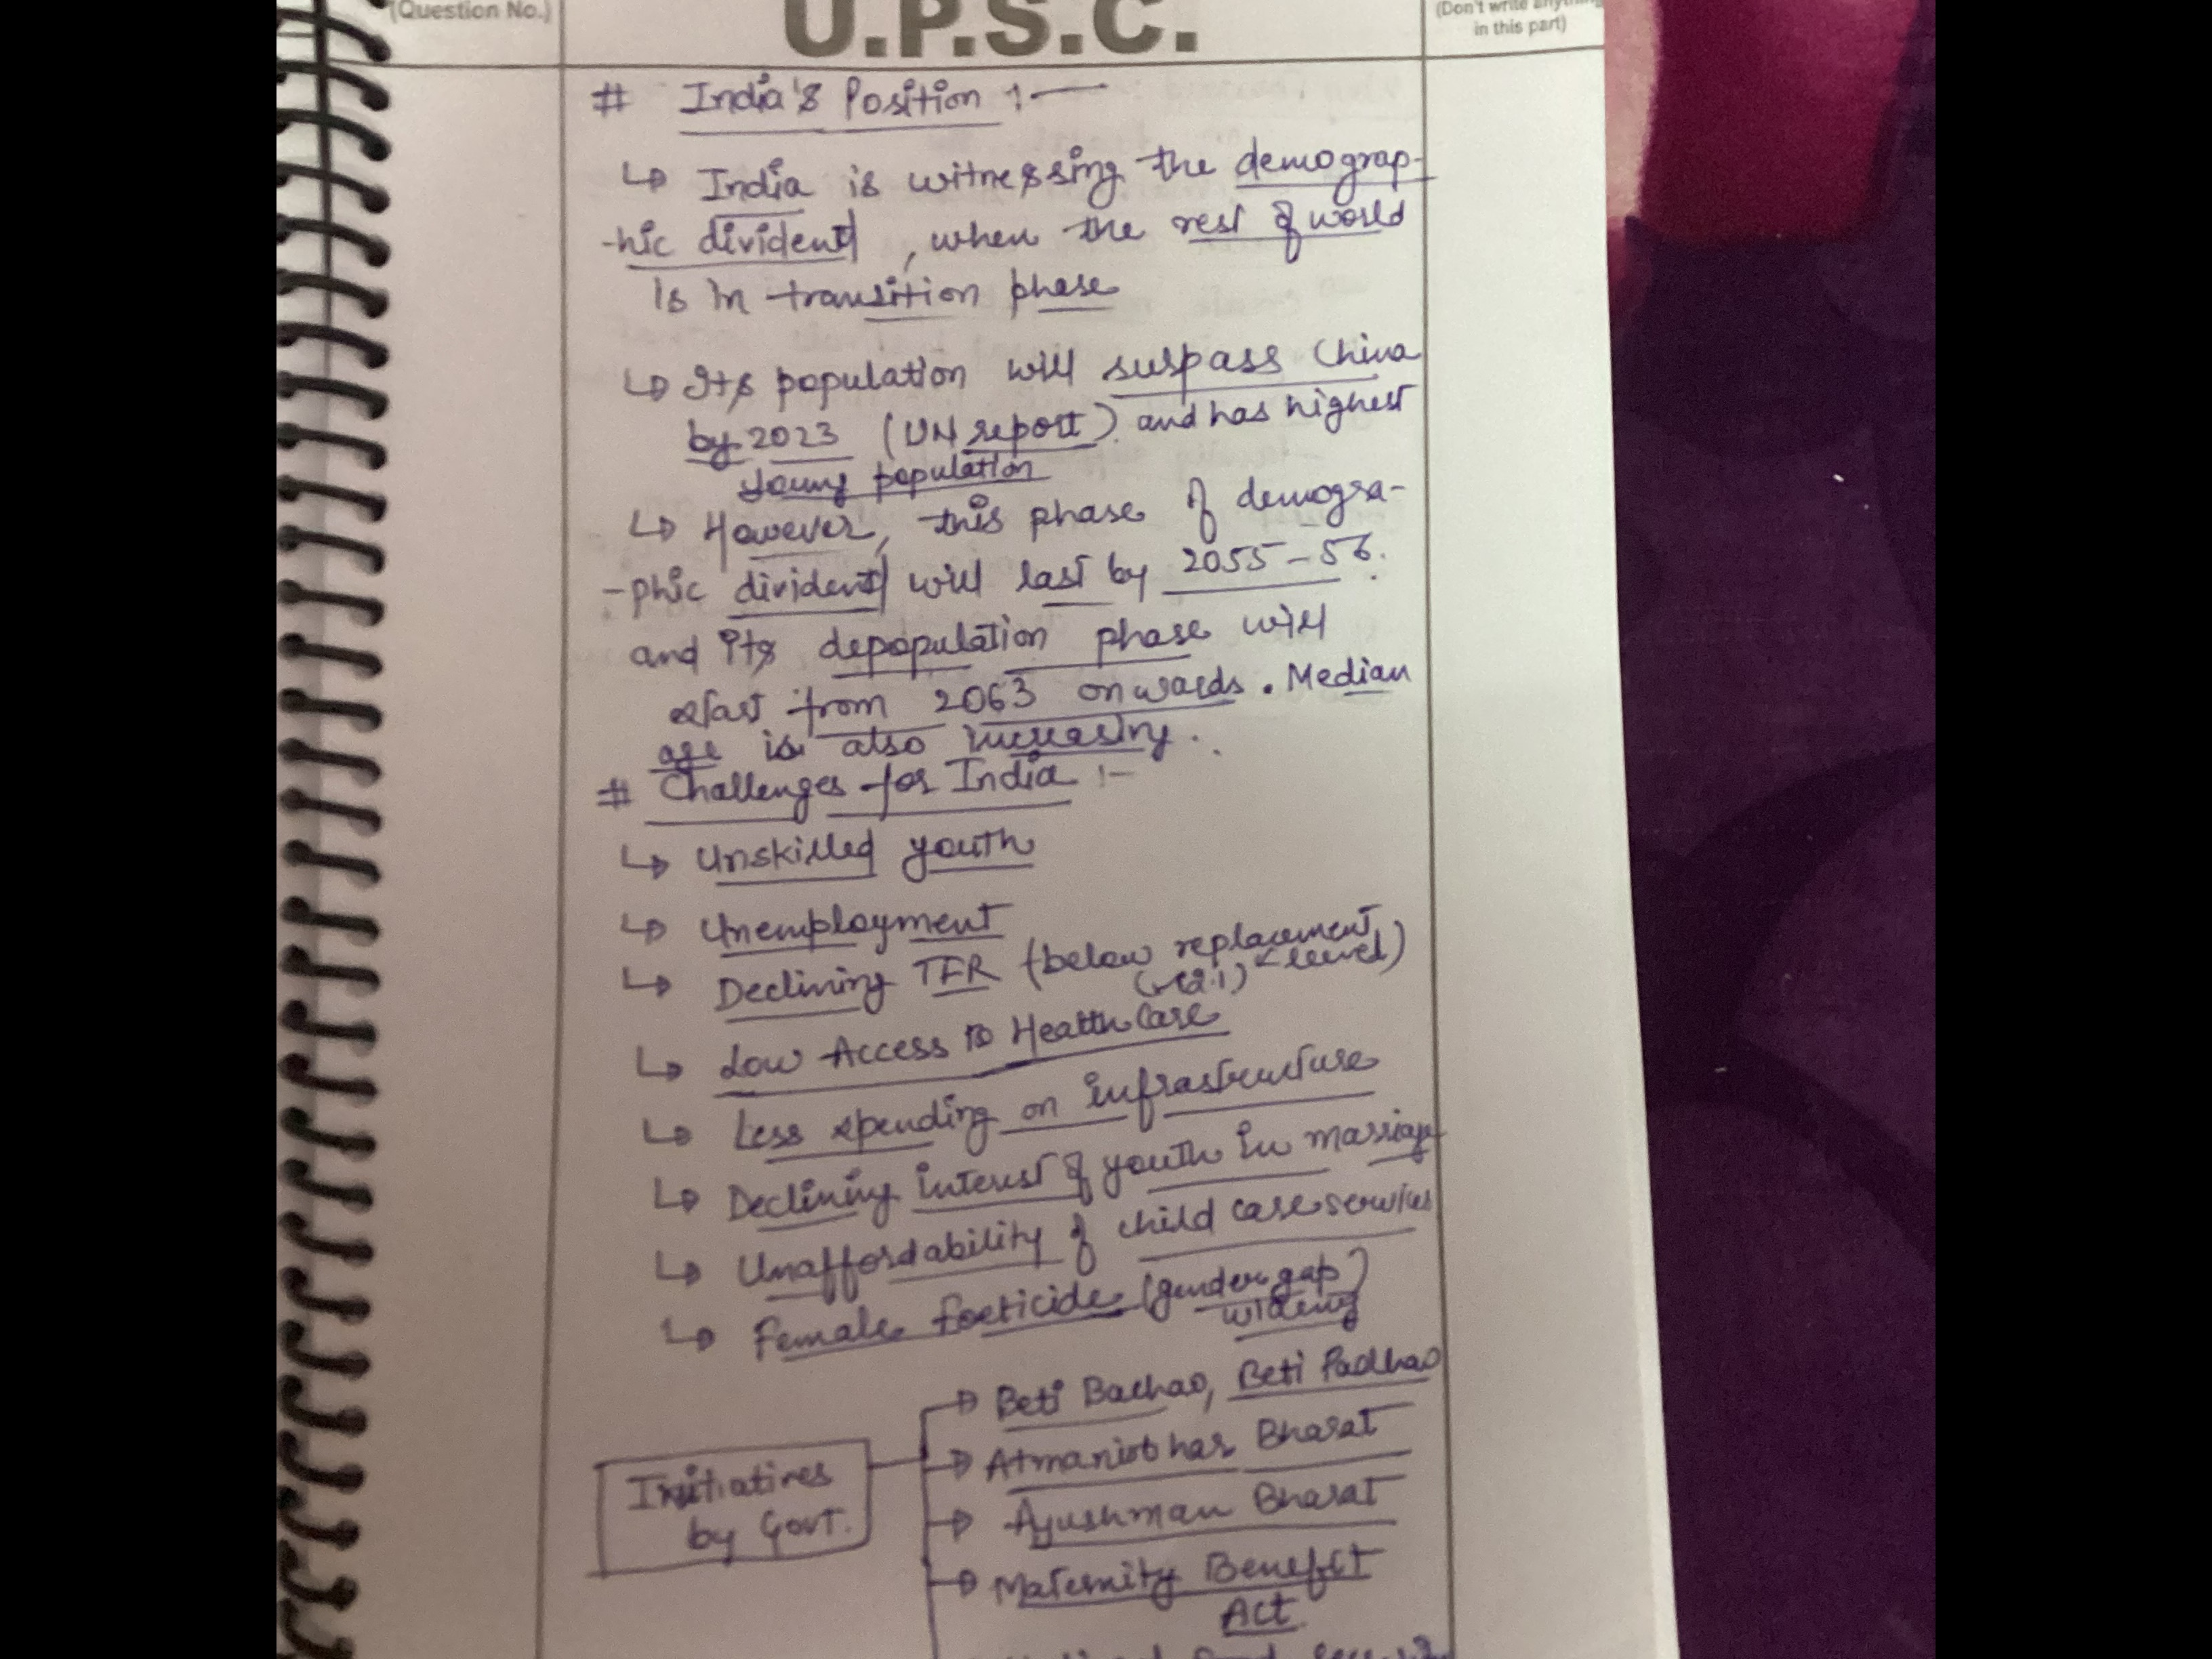 (Question No.)
U.P.S.C.
(Don't write anything
in this part)
# India's Position :-
↳ India is witnessing the demograp-
-hic divident, when the rest of world
is in transition phase
↳ Its population will surpass China
by 2023 (UN report) and has highest
young population
↳ However, this phase of demogra-
-phic divident will last by 2055-56.
and its depopulation phase will
start from 2063 onwards. Median
age is also increasing.
# Challenges for India :-
↳ Unskilled youth
↳ Unemployment
↳ Declining TFR (below replacement
(2.1) level)
↳ Low Access to Health Care
↳ Less spending on infrastructure
↳ Declining interest of youth in marriage
↳ Unaffordability of child care services
↳ Female foeticide (gender gap)
widening
→ Beti Bachao, Beti Padhao
→ Atmanirbhar Bharat
Initiatives
by Govt.
→ Ayushman Bharat
→ Maternity Benefit
Act.